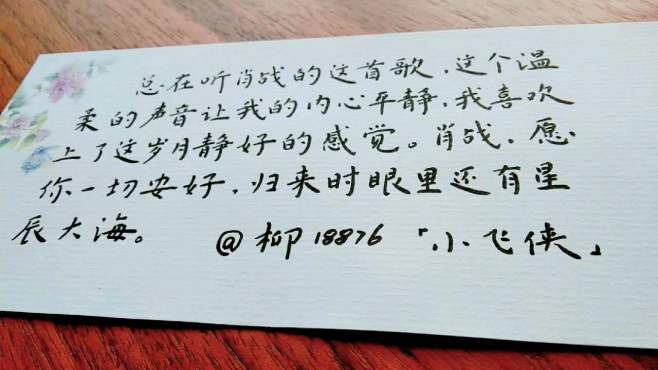 总在听肖战的这首歌，这个温
柔的声音让我的内心平静，我喜欢
上了这岁月静好的感觉。肖战，愿
你一切安好，归来时眼里还有星
辰大海。 @柳18876 「小飞侠」